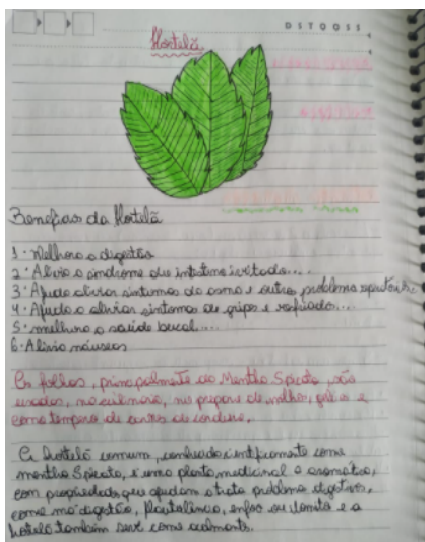 D S T Q Q S S
Hortelã
Beneficios da Hortelã
1· Melhora a digestão
2· Alivia a sindrome do intestino irritado....
3· Ajuda aliviar sintomas da asma e outros problema
4· Ajuda a aliviar sintomas de gripes e resfriados....
5· melhora a saúde bucal....
6· Alivia náuseas
As folhas, principalmente da Mentha Spicata, são
usadas, na culinária, no preparo de molhos, e
como tempero de carne de cordeiro.
A hortelã comum, conhecida cientificamente como
mentha Spicata, é uma planta medicinal e aromática,
com propriedades que ajudam a trata problema digestivos,
como má digestão, flautulência, enjoo ou vomito e a
hortelã também serve como